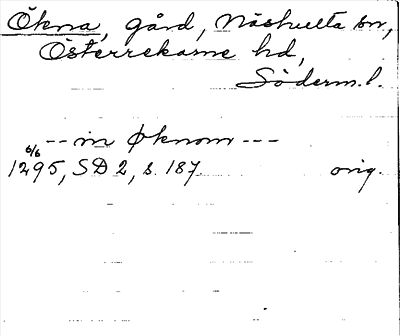 Ökna, gård, Näshulta sn,
Österrekarne hd,
Söderm. l.
-- in Øknom ---
6/6
1295, SD 2, s. 187. orig.